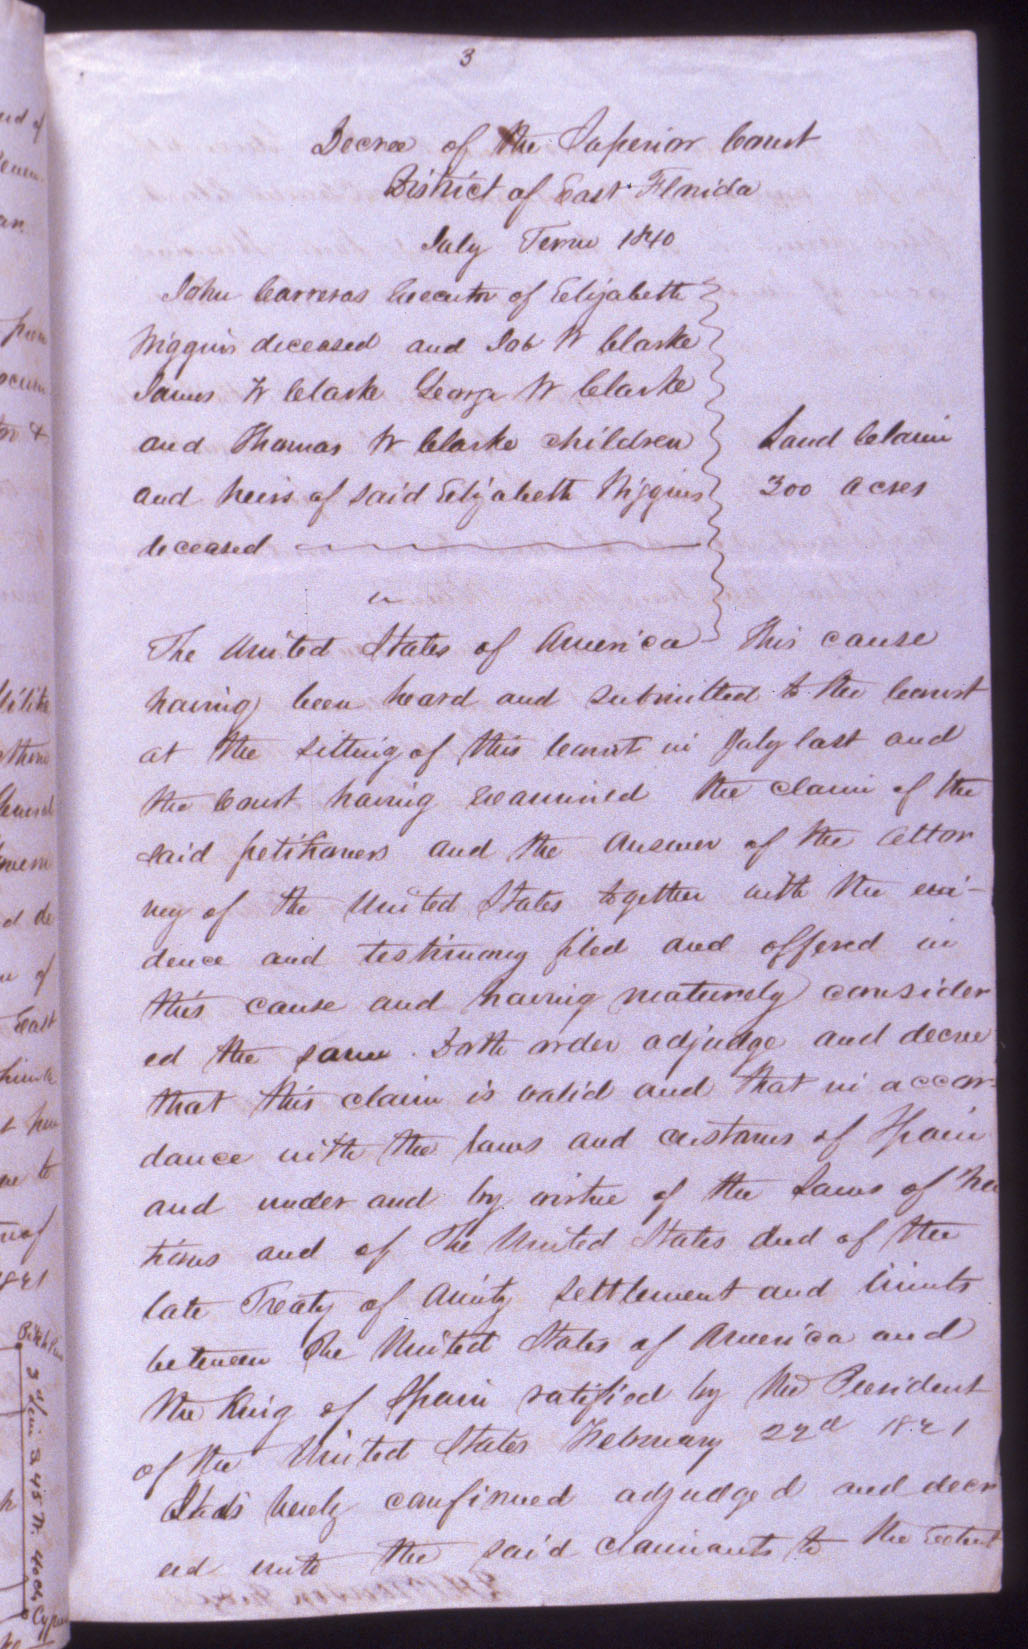 3
Decree of the Superior Court
District of East Florida
July Term 1840
John Carreras Executor of Elizabeth
Wiggins deceased and Job W Clarke
James W Clarke George W Clarke
and Thomas W Clarke children
and heirs of said Elizabeth Wiggins
deceased
Land Claim
300 acres
vs
The United States of America This cause
having been heard and submitted to the Court
at the sitting of this Court in July last and
the Court having examined the claim of the
said petitioners and the answer of the attor
ney of the United States together with the evi-
dence and testimony filed and offered in
this cause and having maturely consider
ed the same. Doth order adjudge and decree
that this claim is valid and that in accor-
dance with the laws and customs of Spain
and under and by virtue of the Laws of Na
tions and of The United States And of the
late Treaty of Amity Settlement and limits
between The United States of America and
the King of Spain ratified by the President
of the United States February 22d 1821
It is hereby confirmed adjudged and decre
ed unto the said claimants to the Extent